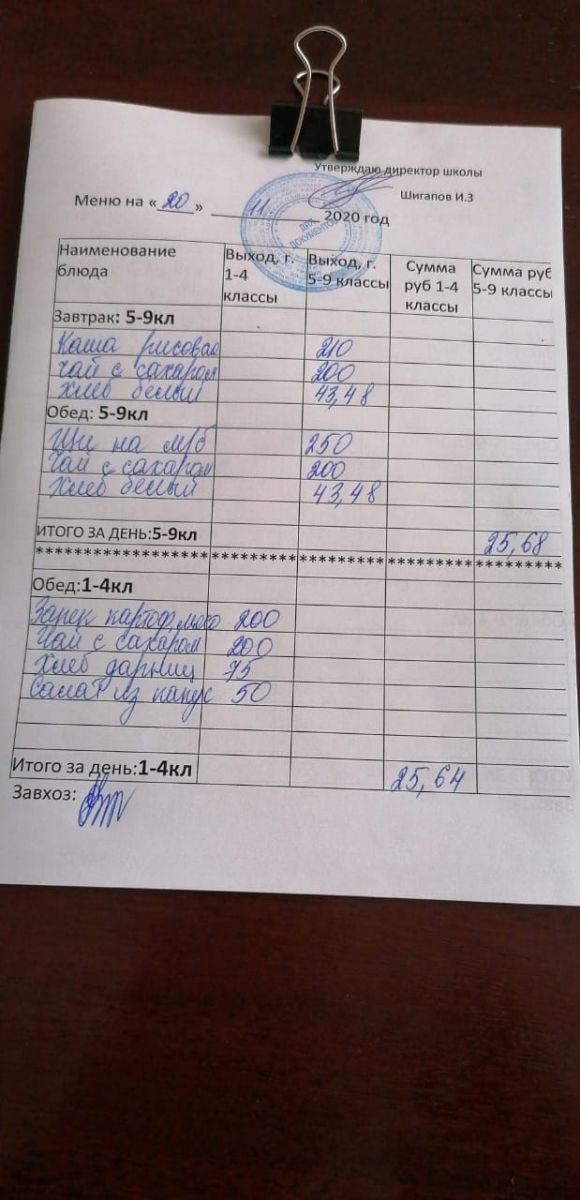 Утверждаю директор школы
Шигапов И.З
Меню на «20» 11 2020 год
ДЛЯ ДОКУМЕНТОВ
Наименование блюда Выход, г. 1-4 классы Выход, г. 5-9 классы Сумма руб 1-4 классы Сумма руб 5-9 классы
Завтрак: 5-9кл
Каша рисовая 210
Чай с сахаром 200
Хлеб белый 43,48
Обед: 5-9кл
Щи на м/б 250
Чай с сахаром 200
Хлеб белый 43,48
ИТОГО ЗА ДЕНЬ:5-9кл 25,68
******************************************************
Обед:1-4кл
Запек картоф 200
Чай с сахаром 200
Хлеб дарниц 75
Салат из капус 50
Итого за день:1-4кл 25,64
Завхоз: